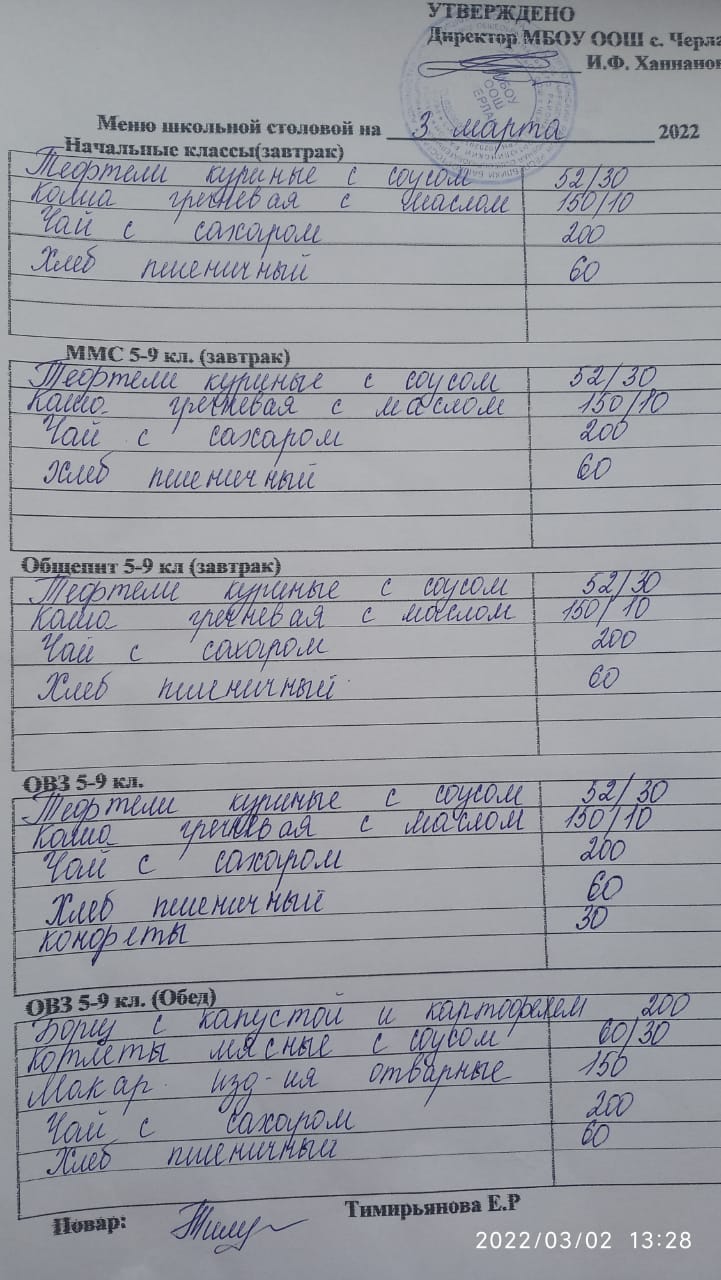 УТВЕРЖДЕНО
Директор МБОУ ООШ с. Черла
И.Ф. Ханнанов
Меню школьной столовой на 3 марта 2022
Начальные классы(завтрак)
Тефтели куриные с соусом 52/30
Каша гречневая с маслом 150/10
Чай с сахаром 200
Хлеб пшеничный 60
ММС 5-9 кл. (завтрак)
Тефтели куриные с соусом 52/30
Каша гречневая с маслом 150/10
Чай с сахаром 200
Хлеб пшеничный 60
Общепит 5-9 кл (завтрак)
Тефтели куриные с соусом 52/30
Каша гречневая с маслом 150/10
Чай с сахаром 200
Хлеб пшеничный 60
ОВЗ 5-9 кл.
Тефтели куриные с соусом 52/30
Каша гречневая с маслом 150/10
Чай с сахаром 200
Хлеб пшеничный 60
конфеты 30
ОВЗ 5-9 кл. (Обед)
Борщ с капустой и картофелем 200
Котлеты мясные с соусом 60/30
Макар. изд-ия отварные 150
Чай с сахаром 200
Хлеб пшеничный 60
Повар: Тимирьянова Е.Р
2022/03/02 13:28